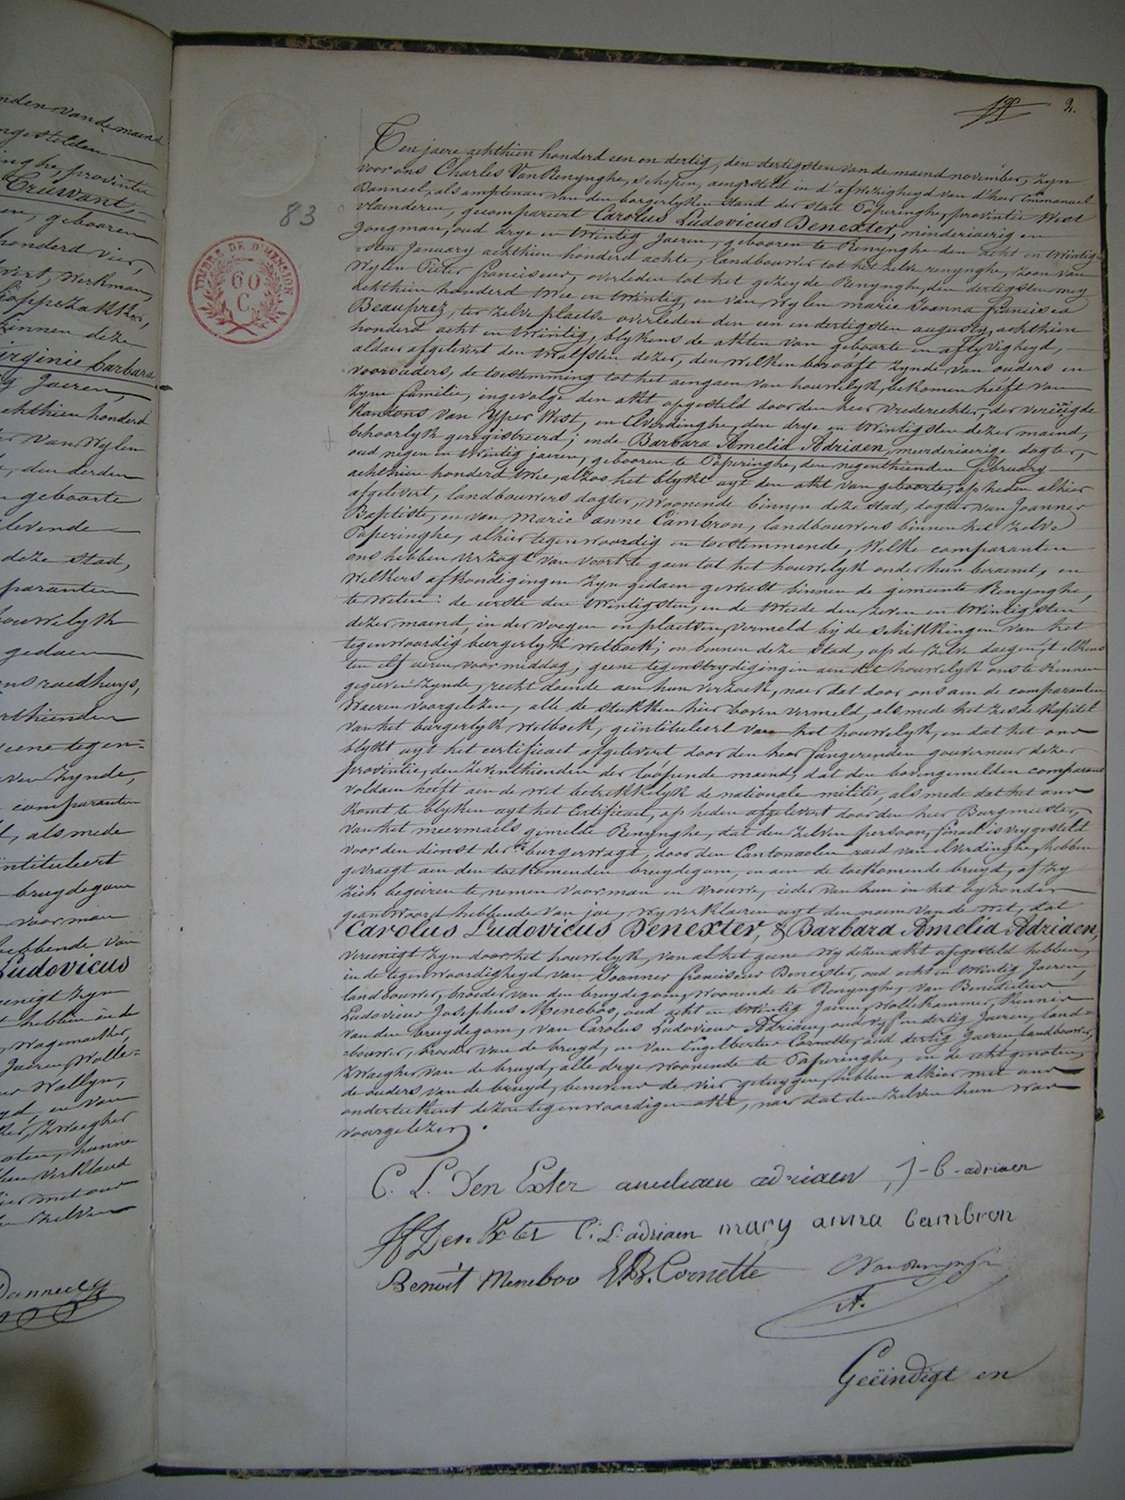 2.
83
TIMBRE DE DIMENSION
60
C.
Ten jaere achthien honderd een en dertig, den dertigsten van de maend november, zyn
voor ons Charles Van Renynghe, schepen, aengesteld in d'afwezigheyd van d'heer Emmanuel
Banneel, als amptenaer van den borgerlyken stand der stad Poperinghe, provintie West
vlanderen, gecompareert Carolus Ludovicus Denexter, minderjaerig en
jongman, oud drye en twintig jaeren, geboren te Renynghe den acht en twintig-
sten January achthien honderd achte, landbouwer tot het zelve renynghe, zoon van
wylen Pieter franciscus, overleden tot het gezeyde Renynghe, den dertigsten mey
achthien honderd twee en twintig, en van wylen marie Joanna francisca
Beauprez, ter zelve plaetse overleden den een en dertigsten augusty, achthien
honderd acht en twintig, blykens de akten van geboorte en aflyvigheyd,
aldaer afgelevert den twalfsten dezer, den welken berooft zynde van ouders en
voorouders, de toestemming tot het aengaen van houwelyk, bekomen heeft van
zyne familie, ingevolge den akt opgesteld door den heer vrederechter der vereenigde
kantons van Yper West, en Elverdinghe, den drye en twintigsten dezer maend,
behoorlyk geregistreerd; ende Barbara Amelia Adriaen, meerderjaerige dogter,
oud negen en twintig jaeren, geboren te Poperinghe, den negenthienden february
achthien honderd twee, alzoo het blykt uyt den akt van geboorte, op heden alhier
afgelevert, landbouwers dogter, woonende binnen deze stad, dogter van Joannes
Baptiste, en van Marie anne Cambron, landbouwers binnen het zelve
Poperinghe, alhier tegenwoordig en toestemmende, welke comparanten
ons hebben verzogt van voort te gaen tot het houwelyk onder hun beraemt, en
welkers afkondigingen zyn gedaen geweest binnen de gemeente Renynghe,
te weten: de eerste den twintigsten, en de tweede den zeven en twintigsten
dezer maend, in der voegen en plaetsen, vermeld by de schikkingen van het
tegenwoordig burgerlyk wetboek; en binnen deze stad, op de zelve daegen, t'elkens
ten elf ueren voor middag; geene tegenstrydigingen aen dit houwelyk ons te kennen
gegeven zynde, recht doende aen hun verzoek, naer dat door ons aen de comparanten
weeren voorgelezen, alle de stukken hier boven vermeld, als mede het zesde kapitel
van het burgerlyk wetboek, geïntituleert van het houwelyk, en dat het ons
blykt uyt het certificaet afgelevert door den heer fungerenden gouverneur dezer
provintie, den zeventhienden der loopende maend, dat den bovengemelden comparant
voldaen heeft aen de wet betrekkelyk de nationale militie, als mede dat het ons
komt te blyken uyt het certificaet, op heden afgelevert door den heer Burgmeester,
van het meermaels gemelde Renynghe, dat den zelven persoon, finael is vrygesteld
voor den dienst der burgerwagt, door den Cantonaelen raed van elverdinghe, hebben
gevraegt aen den toekomenden bruydegom, en aen de toekomende bruyd, of zy
zich begeiren te nemen voor man en vrouwe, ieder van hun in het byzonder
geantwoord hebbende van jae, wy verklaeren uyt den naem van de wet, dat
Carolus Ludovicus Denexter, & Barbara Amelia Adriaen,
vereenigt zyn door het houwelyk, van al het geene wy dezen akt opgesteld hebben,
in de tegenwoordigheyd van Joannes franciscus Denexter, oud acht en twintig Jaeren,
landbouwer, broeder van den bruydegom, woonende te Renynghe, van Benedictus
Ludovicus Josephus Meneboo, oud acht en twintig Jaeren, wollekammer, kennis
van den bruydegom, van Carolus Ludovicus Adriaen, oud vyf en dertig Jaeren, land-
bouwer, broeder van de bruyd, en van Engelbertus Cornette, oud dertig Jaeren, landbouwer,
zwaegher van de bruyd, alle drye woonende te Poperinghe, en de echtgenoten,
de ouders van de bruyd, benevens de vier getuygen, hebben alhier met ons
onderteekent dezen tegenwoordigen akt, naer dat den zelven hun was
voorgelezen.
C. L. Den Exter ameliaeu adriaen, J-b-adriaen
JF Den Exter C: L: adriaen mary anna Cambron
Benoit Meneboo E.B. Cornette
Geëindigt en